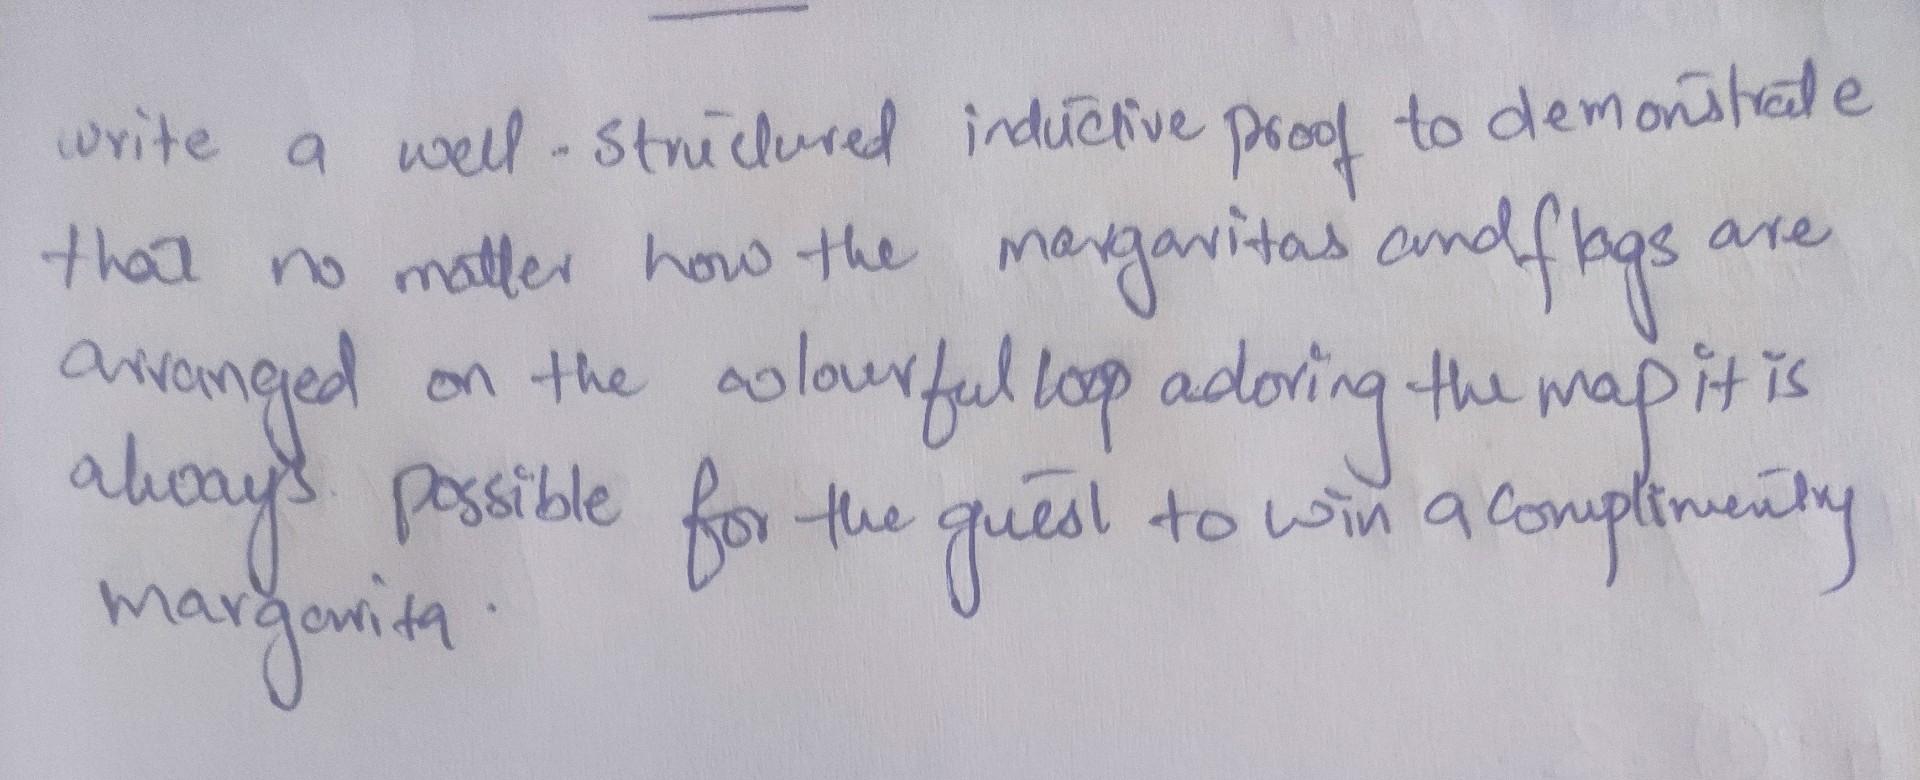 write a well-structured inductive proof to demonstrate
that no matter how the margaritas and flags are
arranged on the colourful loop adoring the map it is
always possible for the guest to win a complimentry
margarita.